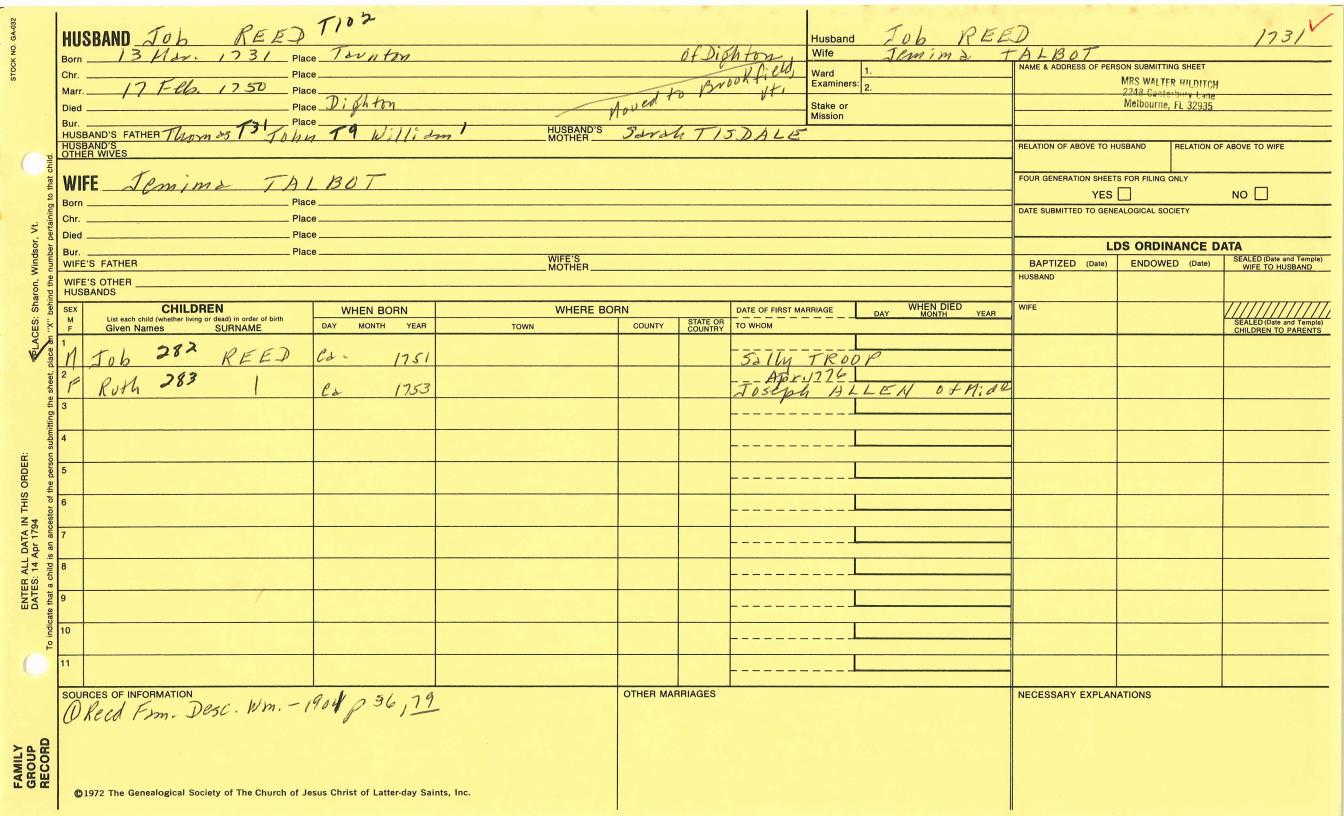 STOCK NO. GA-032
HUSBAND Job REED T102
Born 13 Mar. 1731 Place Taunton of Dighton
Chr. Place Moved to Brookfield, Vt.
Marr. 17 Feb. 1750 Place
Died Place Dighton
Bur. Place
HUSBAND'S FATHER Thomas T31 John T9 William 1 HUSBAND'S MOTHER Sarah TISDALE
HUSBAND'S OTHER WIVES
Husband Job REED 1731
Wife Jemima TALBOT
Ward Examiners: 1.
2.
Stake or Mission
NAME & ADDRESS OF PERSON SUBMITTING SHEET
MRS WALTER HILDITCH
2248 Canterbury Lane
Melbourne, FL 32935
RELATION OF ABOVE TO HUSBAND RELATION OF ABOVE TO WIFE
FOUR GENERATION SHEETS FOR FILING ONLY
YES NO
DATE SUBMITTED TO GENEALOGICAL SOCIETY
WIFE Jemima TALBOT
Born Place
Chr. Place
Died Place
Bur. Place
WIFE'S FATHER WIFE'S MOTHER
WIFE'S OTHER HUSBANDS
LDS ORDINANCE DATA
BAPTIZED (Date) ENDOWED (Date) SEALED (Date and Temple) WIFE TO HUSBAND
HUSBAND
WIFE
SEALED (Date and Temple) CHILDREN TO PARENTS
SEX M F
CHILDREN
List each child (whether living or dead) in order of birth
Given Names SURNAME
WHEN BORN
DAY MONTH YEAR
WHERE BORN
TOWN COUNTY STATE OR COUNTRY
DATE OF FIRST MARRIAGE
TO WHOM
WHEN DIED
DAY MONTH YEAR
1 M Job 282 REED Ca. 1751 Sally TROOP
2 F Ruth 283 Ca 1753 Apr. 1776
Joseph ALLEN of Midd
3
4
5
6
7
8
9
10
11
SOURCES OF INFORMATION
① Reed Fam. Desc. Wm. - 1901 p 36, 79
OTHER MARRIAGES
NECESSARY EXPLANATIONS
©1972 The Genealogical Society of The Church of Jesus Christ of Latter-day Saints, Inc.
FAMILY GROUP RECORD
ENTER ALL DATA IN THIS ORDER:
DATES: 14 Apr 1794
PLACES: Sharon, Windsor, Vt.
To indicate that a child is an ancestor of the person submitting the sheet, place an "X" behind the number pertaining to that child.